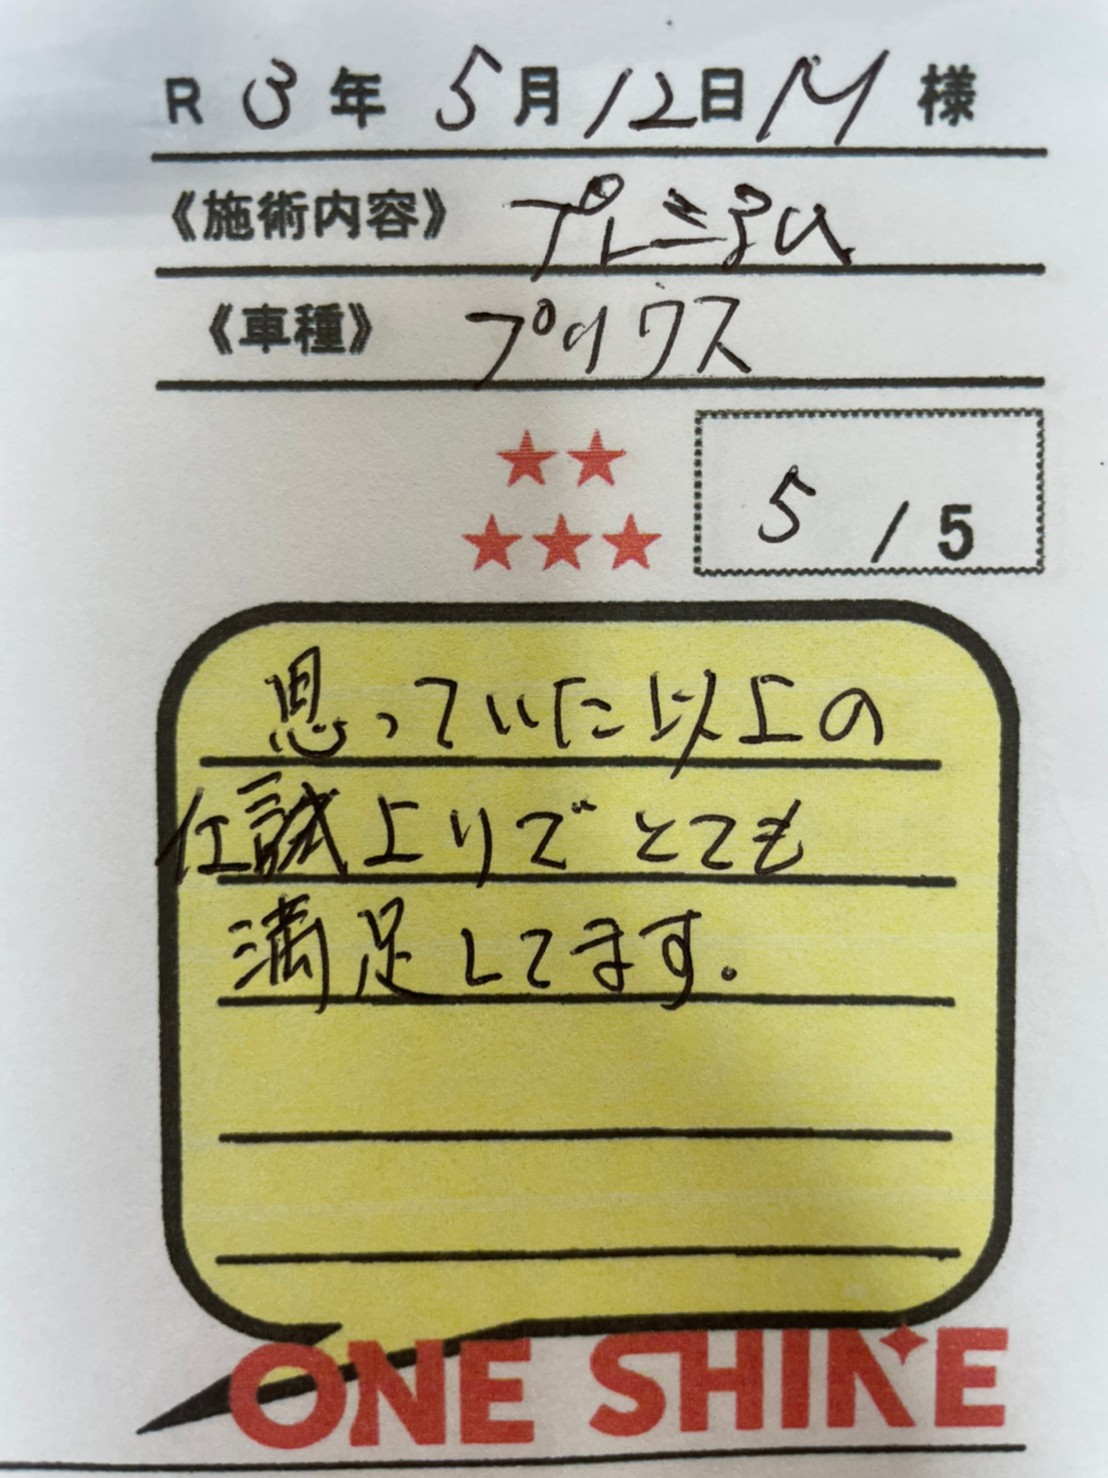 R 3 年 5 月 12 日 M 様
《施術内容》 プレミアム
《車種》 プリウス
★★
★★★
5 / 5
思っていた以上の
仕上りでとても
満足してます.
ONE SHINE